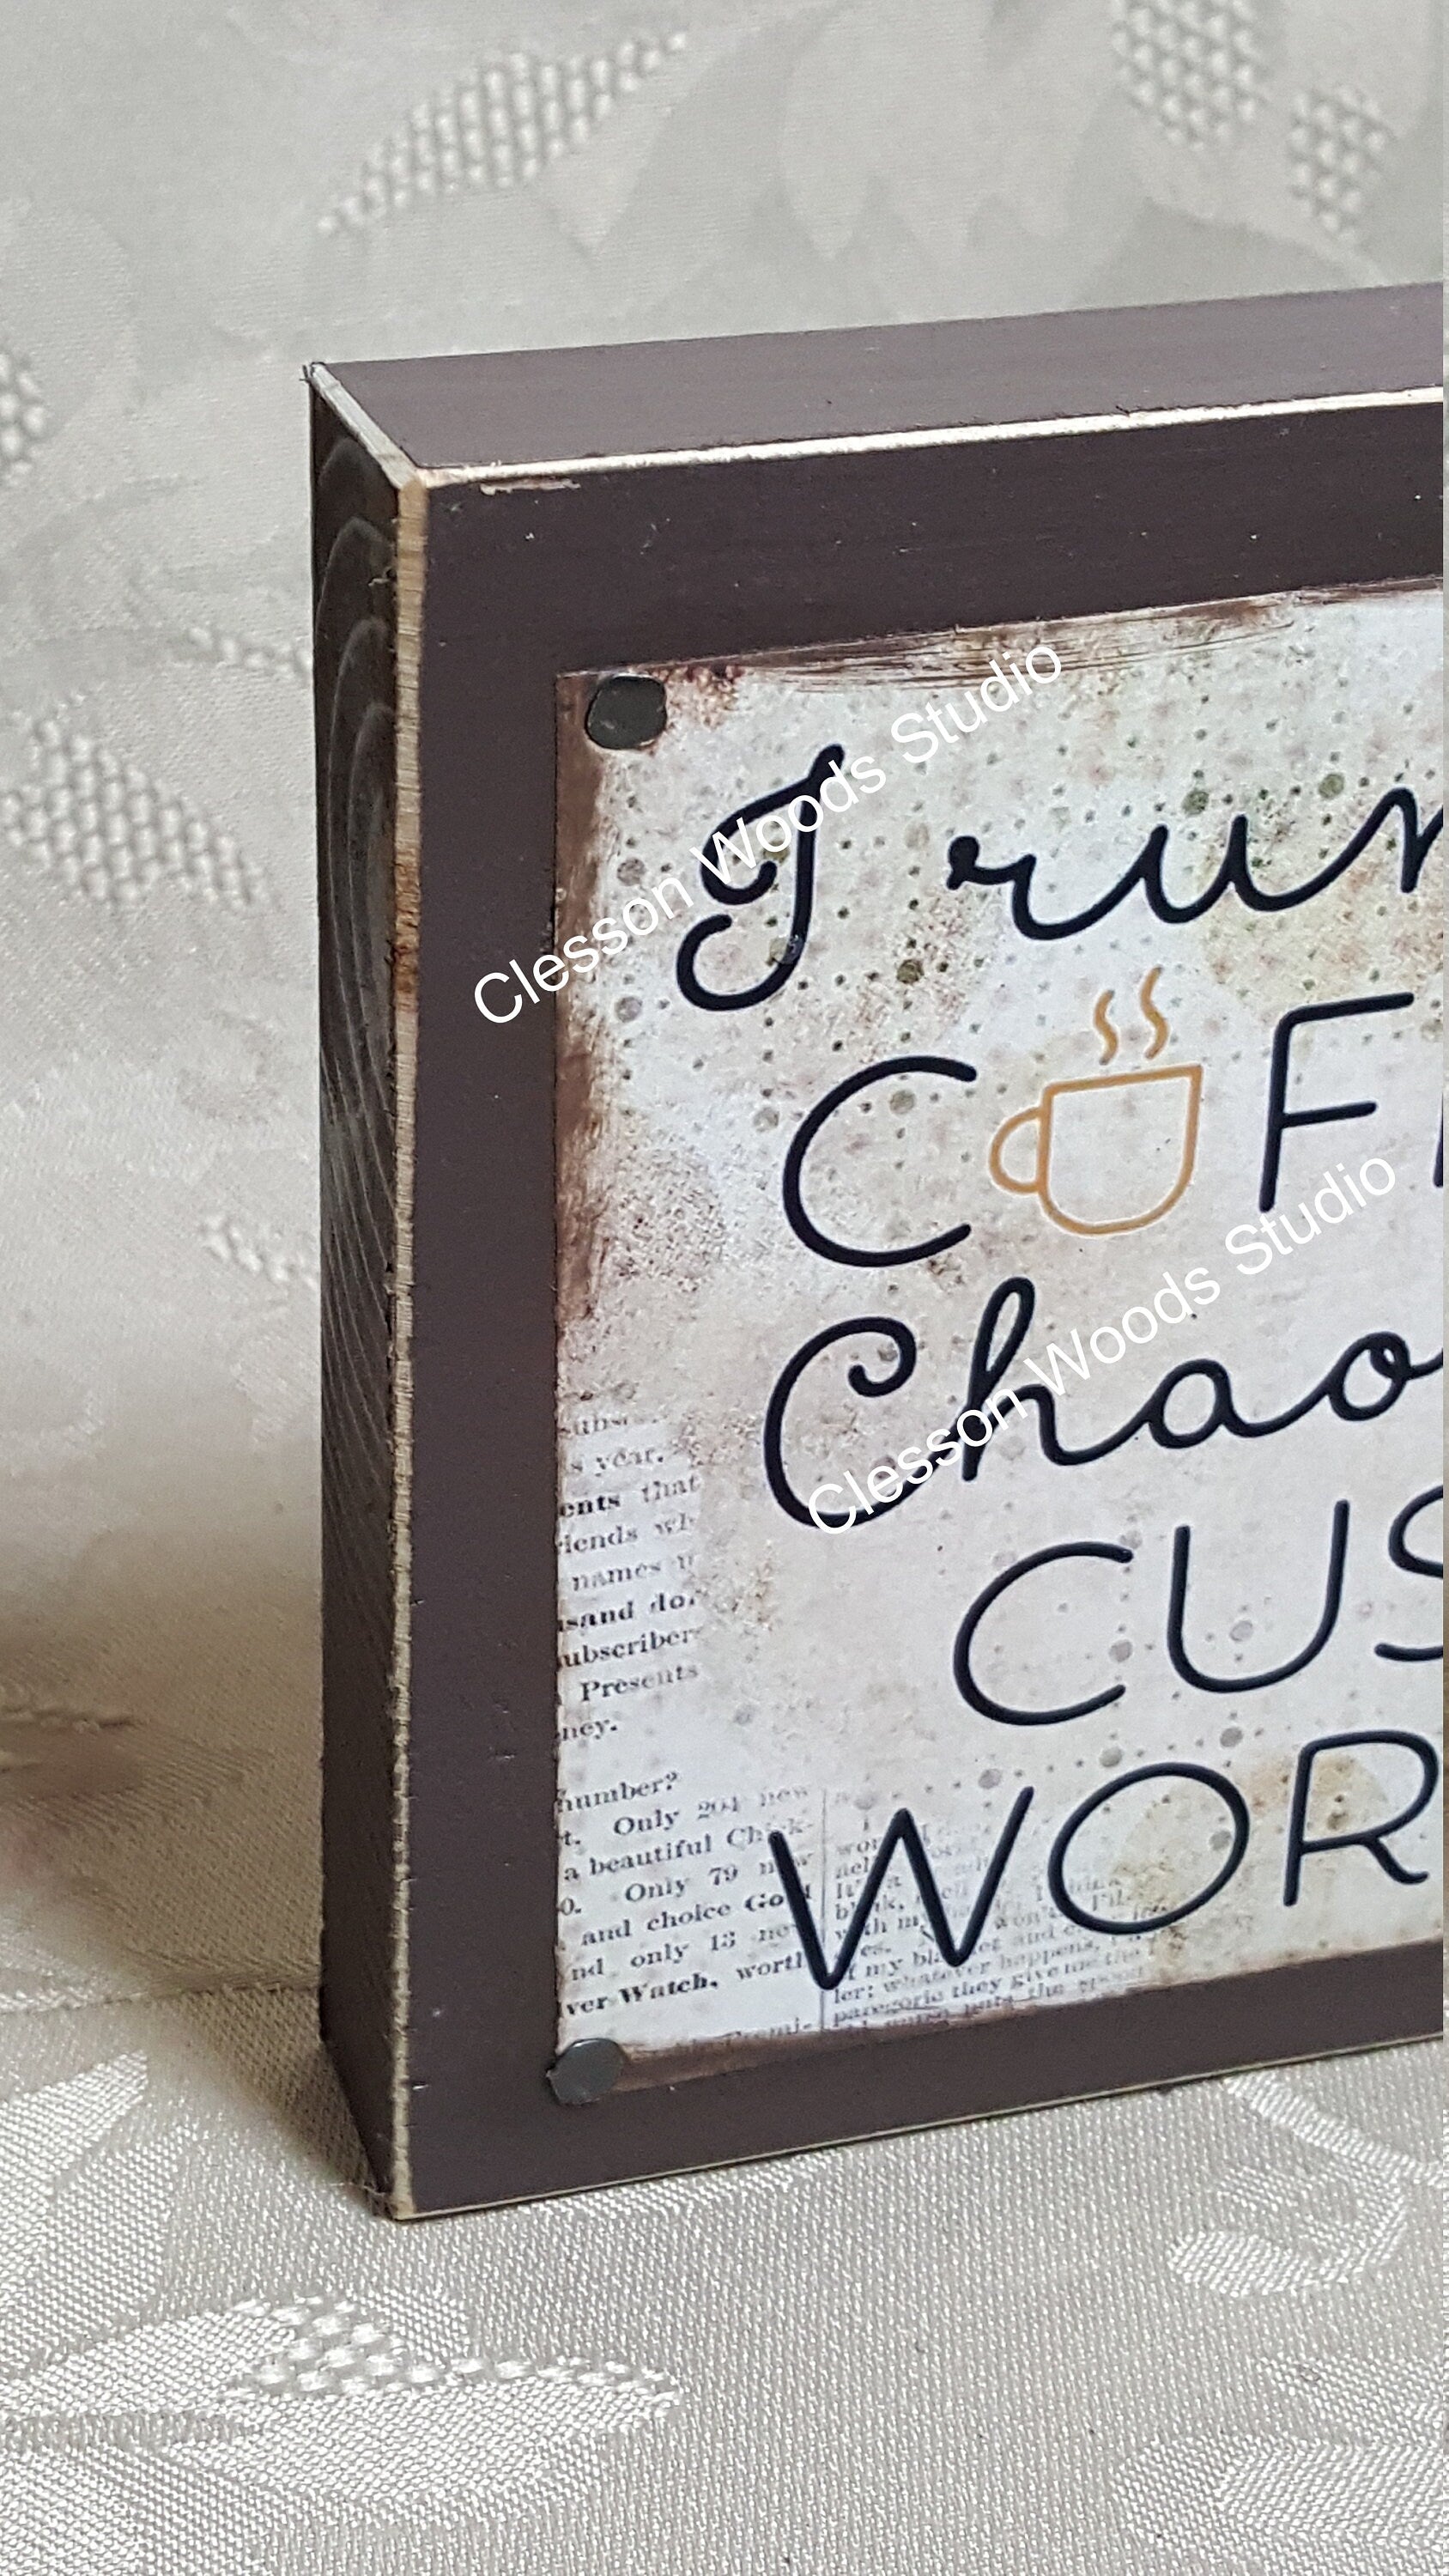 Clesson Woods Studio
I run
C F
Chao
Clesson Woods Studio
CUS
WOR
s year.
ents that
iends wh
names
sand do
ubscriber
Presents
ney.
number?
t. Only 204 new
a beautiful Chick-
0. Only 79 new
and choice Gold
nd only 13 new
ver Watch, worth
my blanket and
ler; whatever happens,
paregoric they give me the